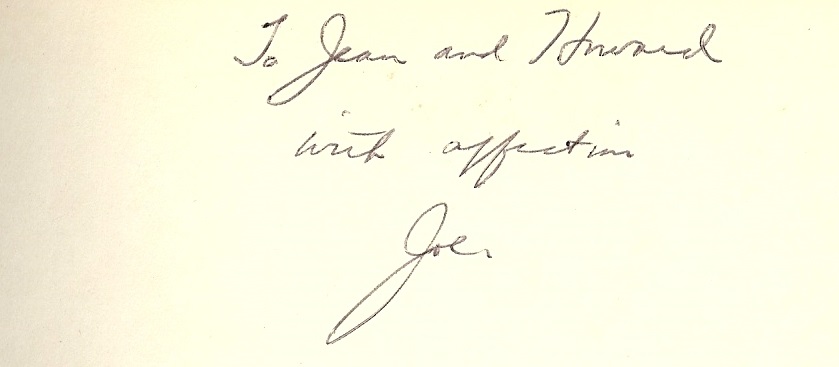 To Jean and Howard
with affection
Joe.